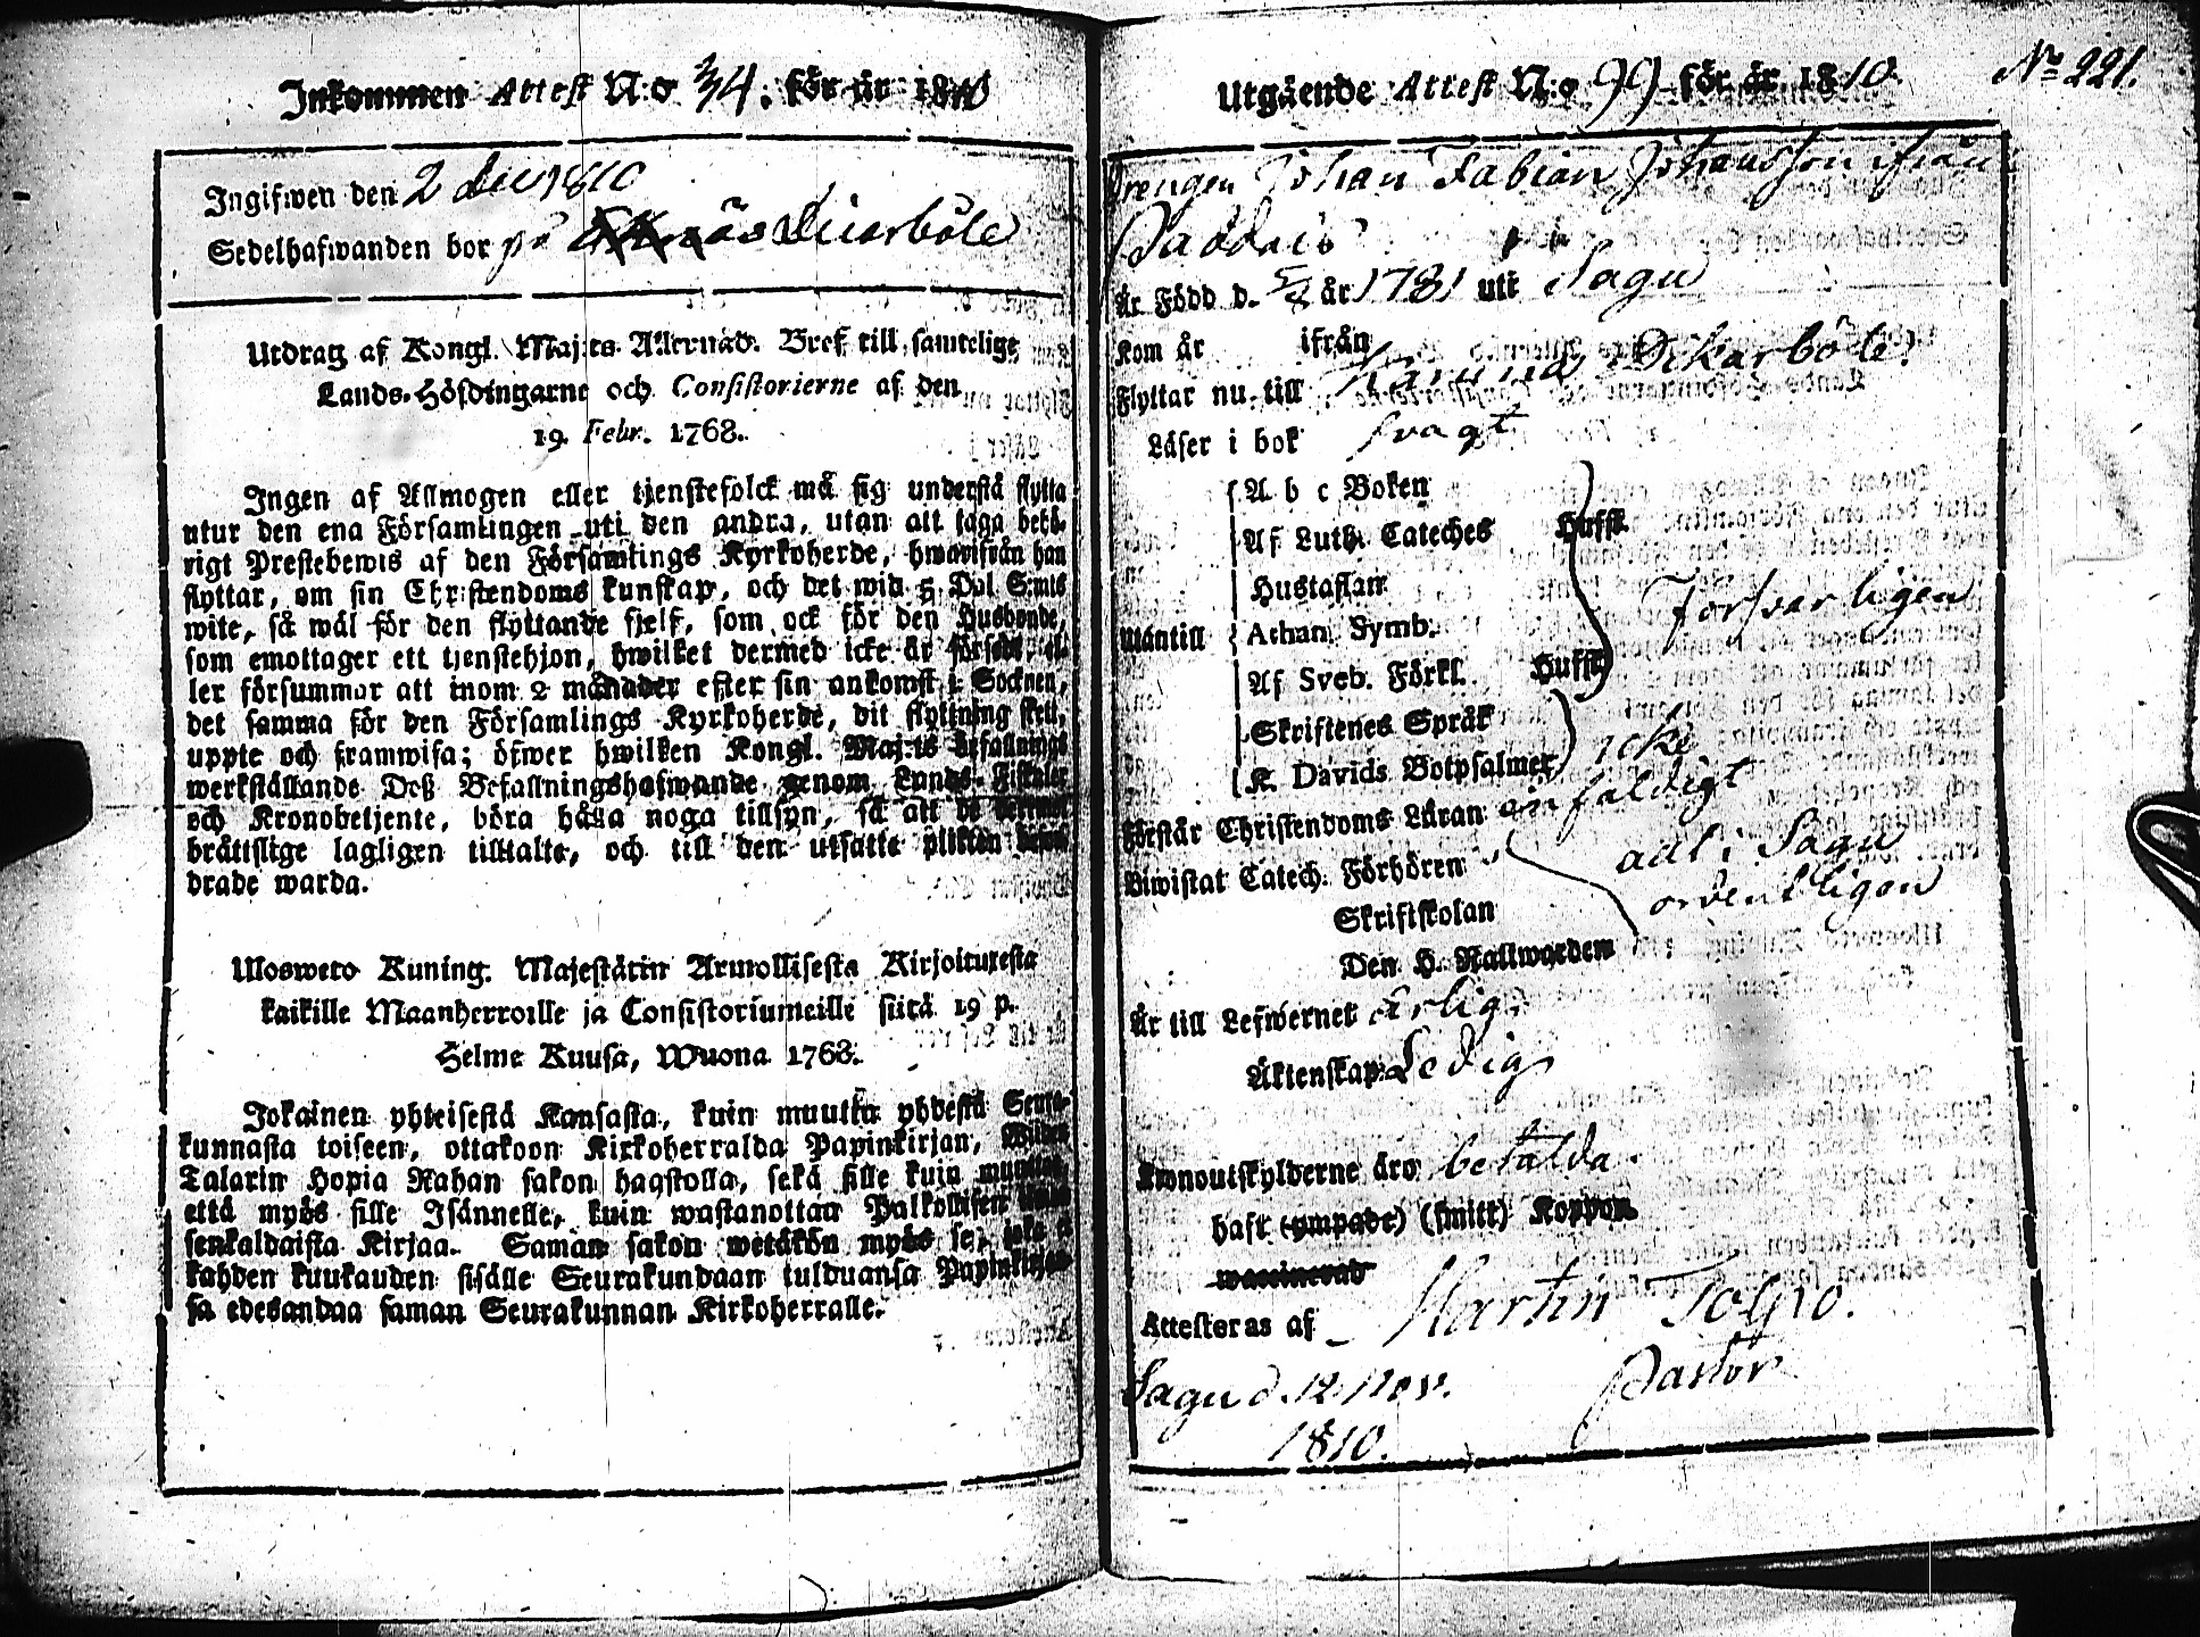 Inkommen Attest N:o 34. för år 1810
Ingifwen den 2 Dec 1810
Sedelhafwanden bor på Dikarböle
Utdrag af Kongl. Maj:ts Allernåd. Bref till samtelige
Lands-Höfdingarne och Consistorierne af den
19. Febr. 1768.
Ingen af Allmogen eller tjenstefolck må sig understå flytta
utur den ena Församlingen uti den andra, utan att taga behö-
rigt Prestebewis af den Församlings Kyrkoherde, hwarifrån han
flyttar, om sin Christendoms kunskap, och det wid 5 Dal S:mts
wite, så wäl för den flyttande sjelf, som ock för den Husbonde,
som emottager ett tjenstehjon, hwilket dermed icke är försedt, el-
ler försummar att inom 2 månader efter sin ankomst i Socknen,
det samma för den Församlings Kyrkoherde, dit flyttning skett,
uppte och framwisa; öfwer hwilken Kongl. Maj:ts befallnings
werkställande Deß Befallningshafwande genom Lands-Fiskaler
och Kronobetjente, böra hålla noga tillsyn, så att de dermed
brättslige lagligen tilltalte, och till den utsatte plikten befor-
drade warda.
Ulosweto Kuning. Majestätin Armollisesta Kirjoituxesta
kaikille Maanherroille ja Consistoriumeille siitä 19 p.
Helme Kuusa, Wuona 1768.
Jokainen yhteisestä Kansasta, kuin muutta yhdestä Seura-
kunnasta toiseen, ottakoon Kirkoherralda Papinkirjan, Wiiden
Talarin Hopia Rahan sakon haastolla, sekä sille kuin muuttaa
että myös sille Isännelle, kuin wastanottaa Palkollisen ilman
senkaldaista Kirjaa. Saman sakon wetäkön myös se, joka ei
kahden kuukauden sisälle Seurakundaan tulduansa Papinkirjaan-
sa edesandaa saman Seurakunnan Kirkoherralle.
Utgående Attest N:o 99 för år 1810. No 221.
Drengen Johan Fabian Johansson ifrån
Paddais
Är Född d. 5/8 år 1781 uti Sagu
Kom år ifrån
Flyttar nu till Karuna Dikarböle
Läser i bok svagt
A b c Boken
Af Luth. Cateches Hufsk.
Hustaflan
Utantill Athan. Symb. Försvarligen
Af Sveb. Förkl. Hufsk.
Skriftenes Språk
K. Davids Botpsalmer icke
Förstår Christendoms Läran enfaldigt
Biwistat Catech. Förhören allt i Sagu
Skriftskolan ordentligen
Den H. Nattwarden
Är till Lefwernet ärlig.
Äktenskap Ledig
Kronoutskylderne äro betalda.
haft (ympade) (smitt) Koppor
waccinerad
Attesteras af Martin Tolpo.
Sagu d. 12 Nov. Pastor
1810.